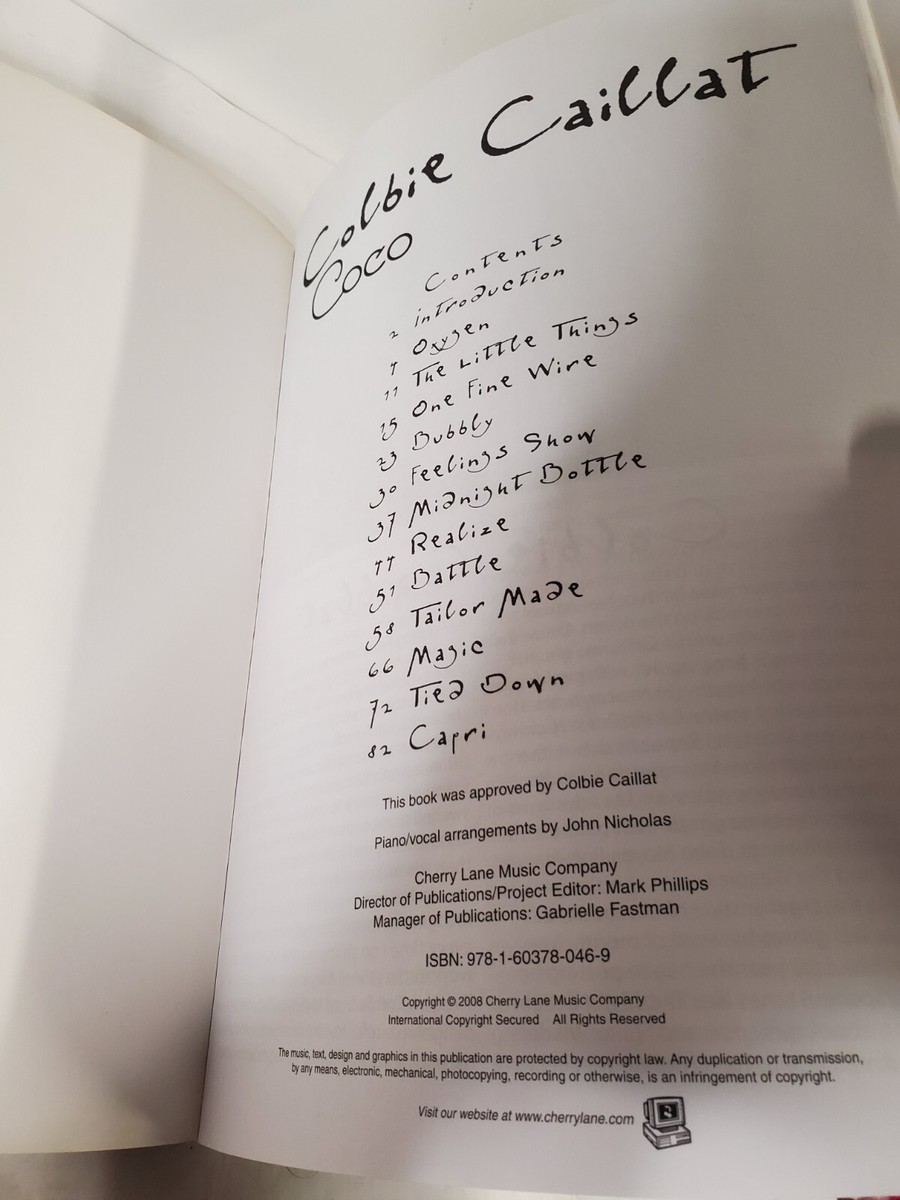 Colbie Caillat
Coco
Contents
2 introduction
4 Oxygen
11 The Little Things
15 One Fine Wire
23 Bubbly
30 Feelings Show
37 Midnight Bottle
44 Realize
51 Battle
58 Tailor Made
66 Magic
72 Tied Down
82 Capri
This book was approved by Colbie Caillat
Piano/vocal arrangements by John Nicholas
Cherry Lane Music Company
Director of Publications/Project Editor: Mark Phillips
Manager of Publications: Gabrielle Fastman
ISBN: 978-1-60378-046-9
Copyright © 2008 Cherry Lane Music Company
International Copyright Secured All Rights Reserved
The music, text, design and graphics in this publication are protected by copyright law. Any duplication or transmission,
by any means, electronic, mechanical, photocopying, recording or otherwise, is an infringement of copyright.
Visit our website at www.cherrylane.com